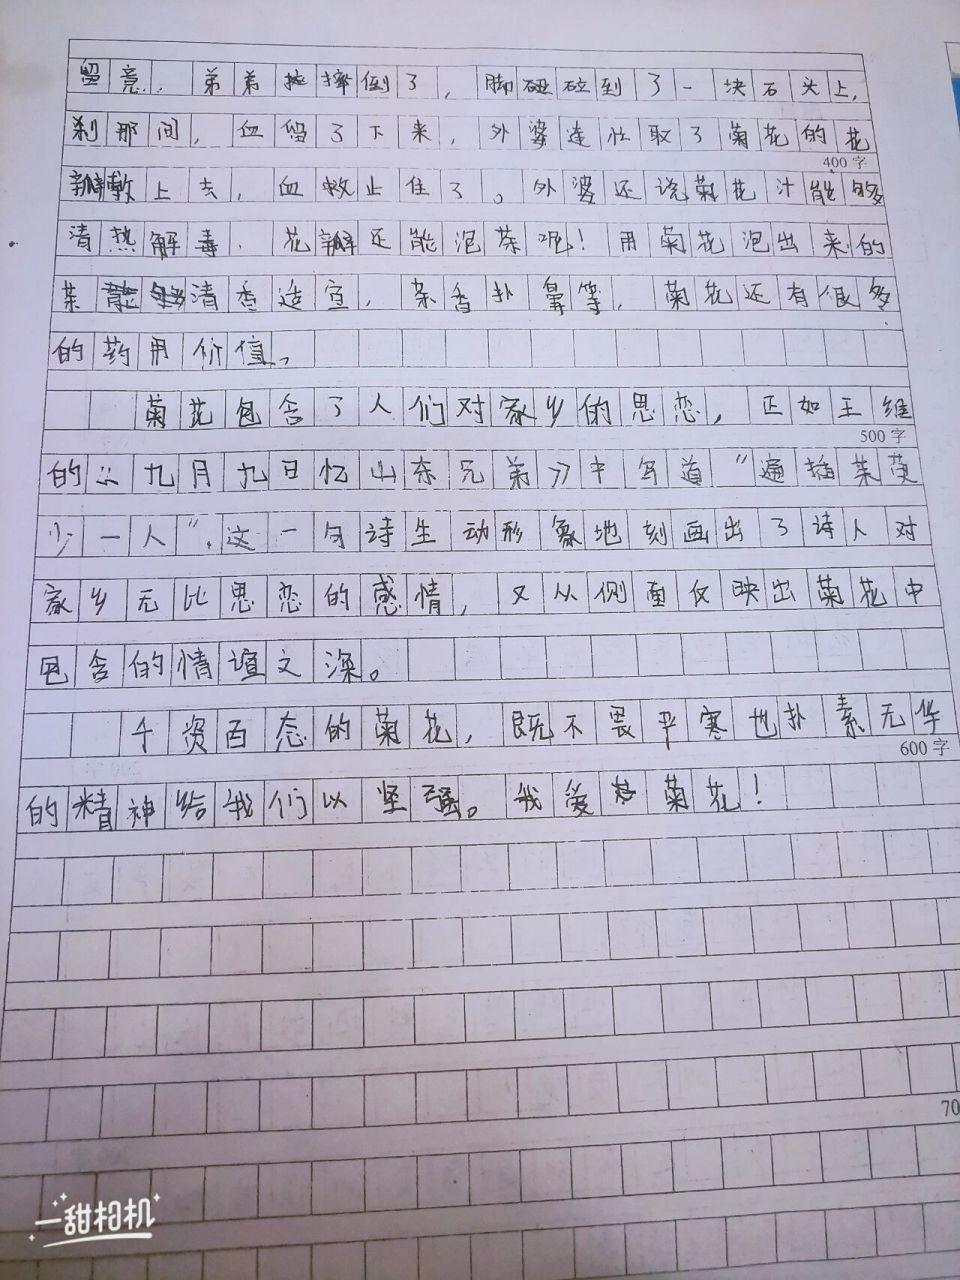 留意，弟弟摔倒了，脚碰到了一块石头上，
刹那间，血留了下来，外婆连忙取了菊花的花
400字
瓣敷上去，血救止住了。外婆还说菊花汁能够
清热解毒．花瓣还能泡茶呢！用菊花泡出来的
茶清香适宜，茶香扑鼻等，菊花还有很多
的药用价值。
菊花包含了人们对家乡的思恋，正如王维
500字
的《九月九日忆山东兄弟》中写道“遍插茱萸
少一人”，这一句诗生动形象地刻画出了诗人对
家乡无比思恋的感情，又从侧面反映出菊花中
包含的情谊之深。
千资百态的菊花，既不畏严寒也扑素无华
600字
的精神给我们以坚强。我爱菊花！
70
一甜相机